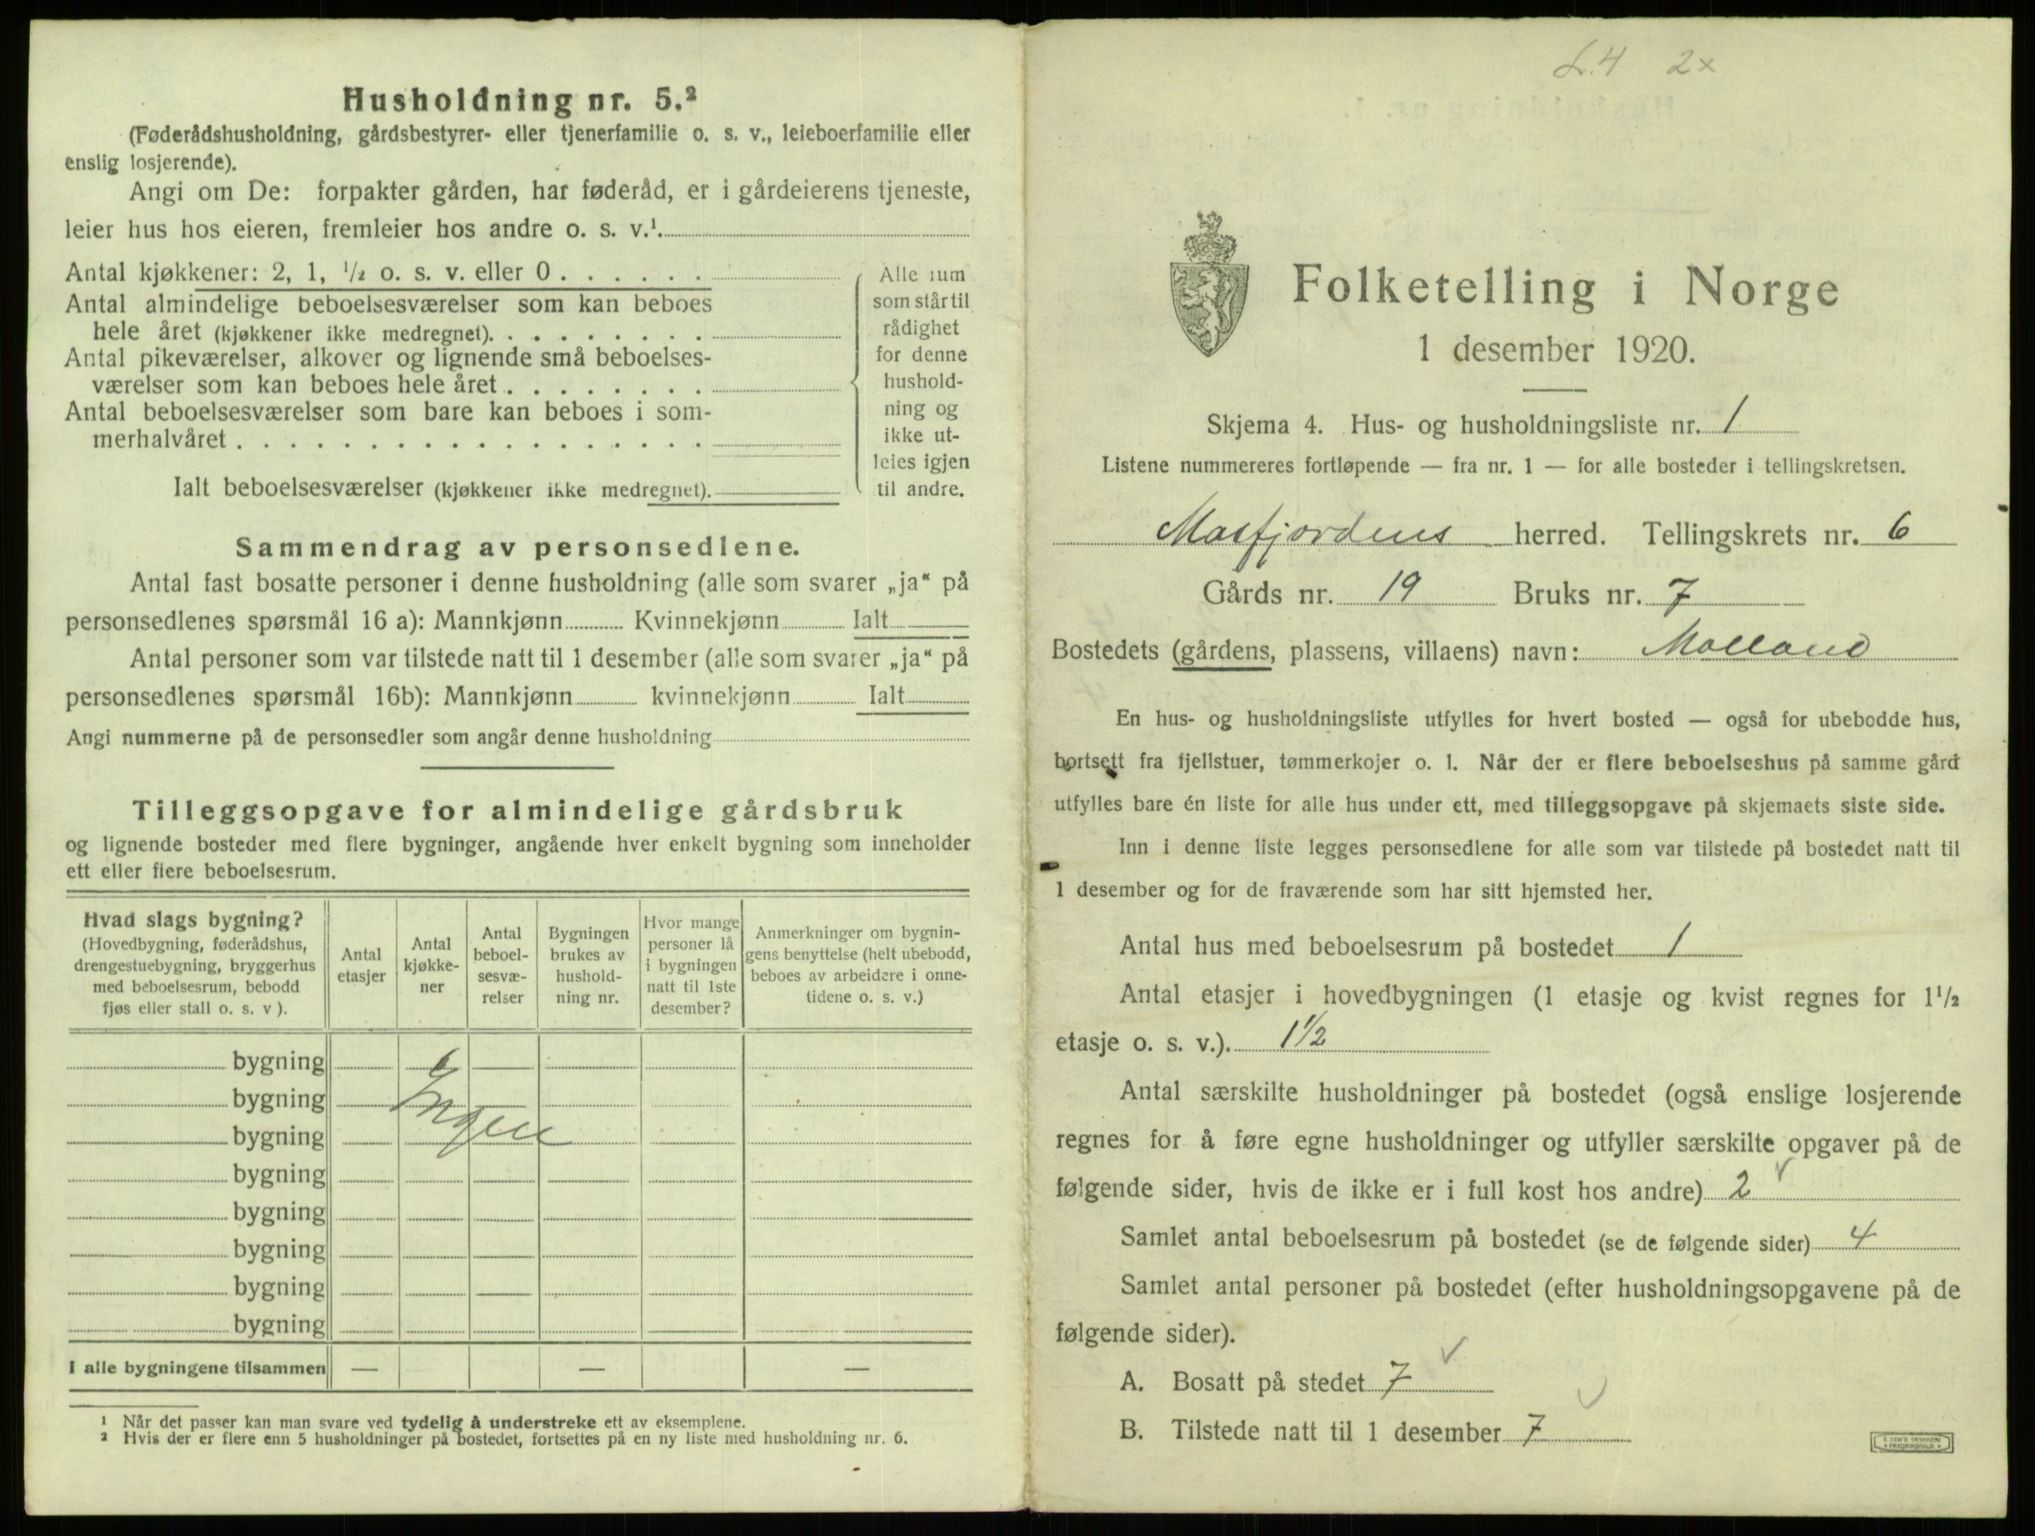 Husholdning nr. 5.²
(Føderådshusholdning, gårdsbestyrer- eller tjenerfamilie o. s. v., leieboerfamilie eller
enslig losjerende).
Angi om De: forpakter gården, har føderåd, er i gårdeierens tjeneste,
leier hus hos eieren, fremleier hos andre o. s. v.¹.
Antal kjøkkener: 2, 1, ½ o. s. v. eller 0 . . . . . .
Antal almindelige beboelsesværelser som kan beboes
hele året (kjøkkener ikke medregnet). . . . . . . . .
Antal pikeværelser, alkover og lignende små beboelses-
værelser som kan beboes hele året . . . . . . . .
Antal beboelsesværelser som bare kan beboes i som-
merhalvåret . . . . . . . . . . . . . . . . . .
Ialt beboelsesværelser (kjøkkener ikke medregnet).
Alle rum
som står til
rådighet
for denne
hushold-
ning og
ikke ut-
leies igjen
til andre.
Sammendrag av personsedlene.
Antal fast bosatte personer i denne husholdning (alle som svarer „ja“ på
personsedlenes spørsmål 16 a): Mannkjønn Kvinnekjønn Ialt
Antal personer som var tilstede natt til 1 desember (alle som svarer „ja“ på
personsedlenes spørsmål 16b): Mannkjønn kvinnekjønn Ialt
Angi nummerne på de personsedler som angår denne husholdning
Tilleggsopgave for almindelige gårdsbruk
og lignende bosteder med flere bygninger, angående hver enkelt bygning som inneholder
ett eller flere beboelsesrum.
Hvad slags bygning?
(Hovedbygning, føderådshus,
drengestuebygning, bryggerhus
med beboelsesrum, bebodd
fjøs eller stall o. s. v ).
Antal
etasjer
Antal
kjøkke-
ner
Antal
beboel-
sesvæ-
relser
Bygningen
brukes av
hushold-
ning nr.
Hvor mange
personer lå
i bygningen
natt til 1ste
desember?
Anmerkninger om bygnin-
gens benyttelse (helt ubebodd,
beboes av arbeidere i onne-
tidene o. s. v.)
bygning
bygning
Ingen
bygning
bygning
bygning
bygning
bygning
bygning
I alle bygningene tilsammen — — —
¹ Når det passer kan man svare ved tydelig å understreke ett av eksemplene.
² Hvis der er flere enn 5 husholdninger på bostedet, fortsettes på en ny liste med husholdning nr. 6.
L.4 2x
Folketelling i Norge
1 desember 1920.
Skjema 4. Hus- og husholdningsliste nr. 1
Listene nummereres fortløpende — fra nr. 1 — for alle bosteder i tellingskretsen.
Masfjordens herred. Tellingskrets nr. 6
Gårds nr. 19 Bruks nr. 7
Bostedets (gårdens, plassens, villaens) navn: Molland
En hus- og husholdningsliste utfylles for hvert bosted — også for ubebodde hus,
bortsett fra fjellstuer, tømmerkojer o. l. Når der er flere beboelseshus på samme gård
utfylles bare én liste for alle hus under ett, med tilleggsopgave på skjemaets siste side.
Inn i denne liste legges personsedlene for alle som var tilstede på bostedet natt til
1 desember og for de fraværende som har sitt hjemsted her.
Antal hus med beboelsesrum på bostedet 1
Antal etasjer i hovedbygningen (1 etasje og kvist regnes for 1½
etasje o. s. v.). 1½
Antal særskilte husholdninger på bostedet (også enslige losjerende
regnes for å føre egne husholdninger og utfyller særskilte opgaver på de
følgende sider, hvis de ikke er i full kost hos andre) 2
Samlet antal beboelsesrum på bostedet (se de følgende sider) 4
Samlet antal personer på bostedet (efter husholdningsopgavene på de
følgende sider).
A. Bosatt på stedet 7
B. Tilstede natt til 1 desember 7